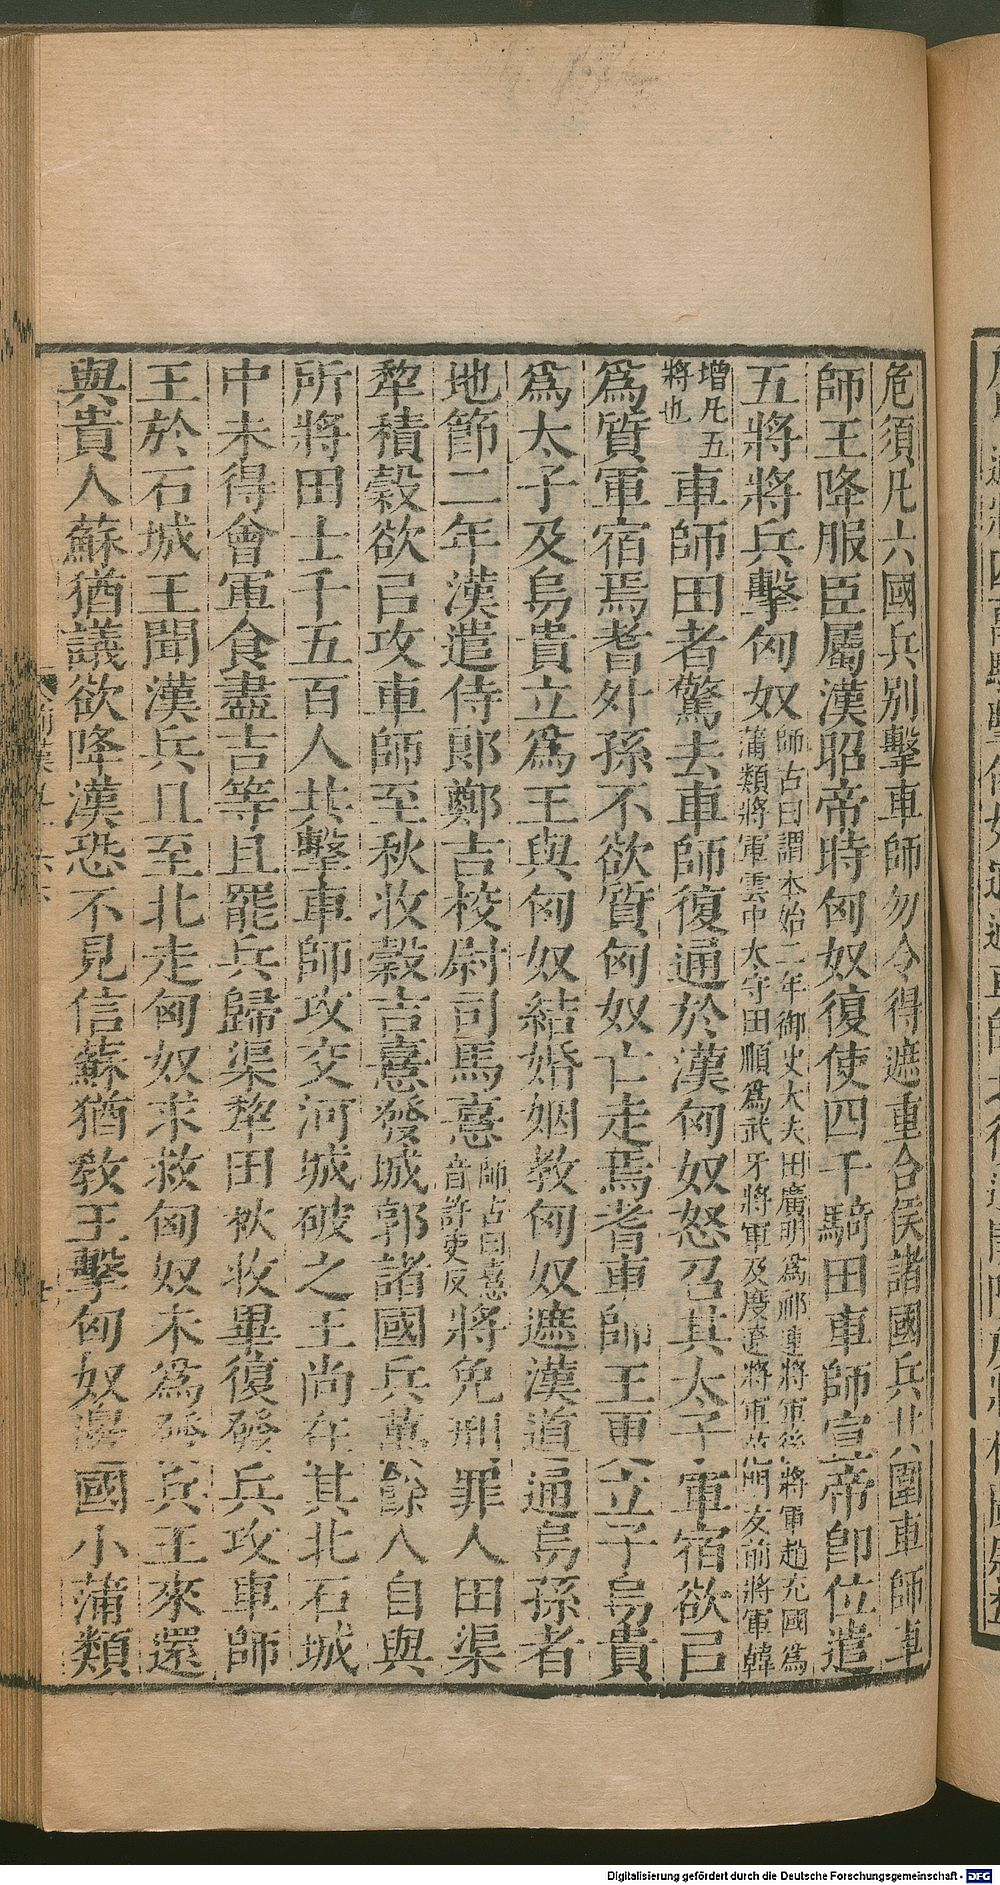 危須凡六國兵别擊車師勿令得遮重合侯諸國兵共圍車師車
師王降服臣屬漢昭帝時匈奴復使四千騎田車師宣帝卽位遣
五將將兵擊匈奴師古曰謂本始二年御史大夫田廣明爲祁連將軍後將軍趙充國爲
蒲類將軍雲中太守田順爲武牙將軍及度遼將軍范明友前將軍韓
增凡五
將也車師田者驚去車師復通於漢匈奴怒召其太子軍宿欲㠯
爲質軍宿焉耆外孫不欲質匈奴亡走焉耆車師王更立子烏貴
爲太子及烏貴立爲王與匈奴結婚姻教匈奴遮漢道通烏孫者
地節二年漢遣侍郎鄭吉校尉司馬憙師古曰憙
音許吏反將免刑罪人田渠
犂積穀欲㠯攻車師至秋收穀吉憙發城郭諸國兵萬餘人自與
所將田士千五百人共擊車師攻交河城破之王尚在其北石城
中未得會軍食盡吉等且罷兵歸渠犂田秋收畢復發兵攻車師
王於石城王聞漢兵且至北走匈奴求救匈奴未爲發兵王來還
與貴人蘇猶議欲降漢恐不見信蘇猶教王擊匈奴邊國小蒲類
Digitalisierung gefördert durch die Deutsche Forschungsgemeinschaft - DFG